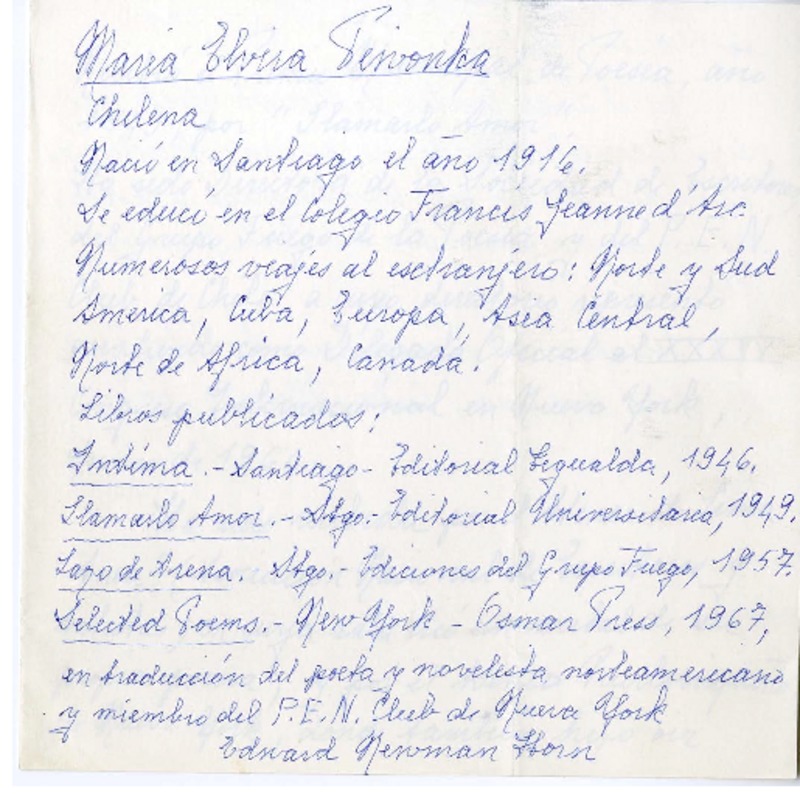 María Elvira Piwonka
Chilena
Nació en Santiago el año 1916.
Se educó en el Colegio Francés Jeanne d'Arc.
Numerosos viajes al extranjero: Norte y Sud
América, Cuba, Europa, Asia Central,
Norte de Africa, Canadá.
Libros publicados:
Intima.- Santiago- Editorial Zigualda, 1946.
Llamarlo Amor.- Stgo.- Editorial Universitaria, 1949.
Lazo de Arena. Stgo.- Ediciones del Grupo Fuego, 1957.
Selected Poems.- New York - Osmar Press, 1967,
en traducción del poeta y novelista norteamericano
y miembro del P.E.N. Club de Nueva York
Edward Newman Horn